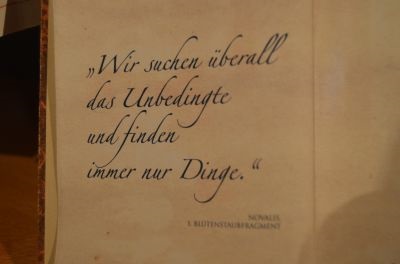 „Wir suchen überall
das Unbedingte
und finden
immer nur Dinge.“
NOVALIS,
1. BLÜTENSTAUBFRAGMENT